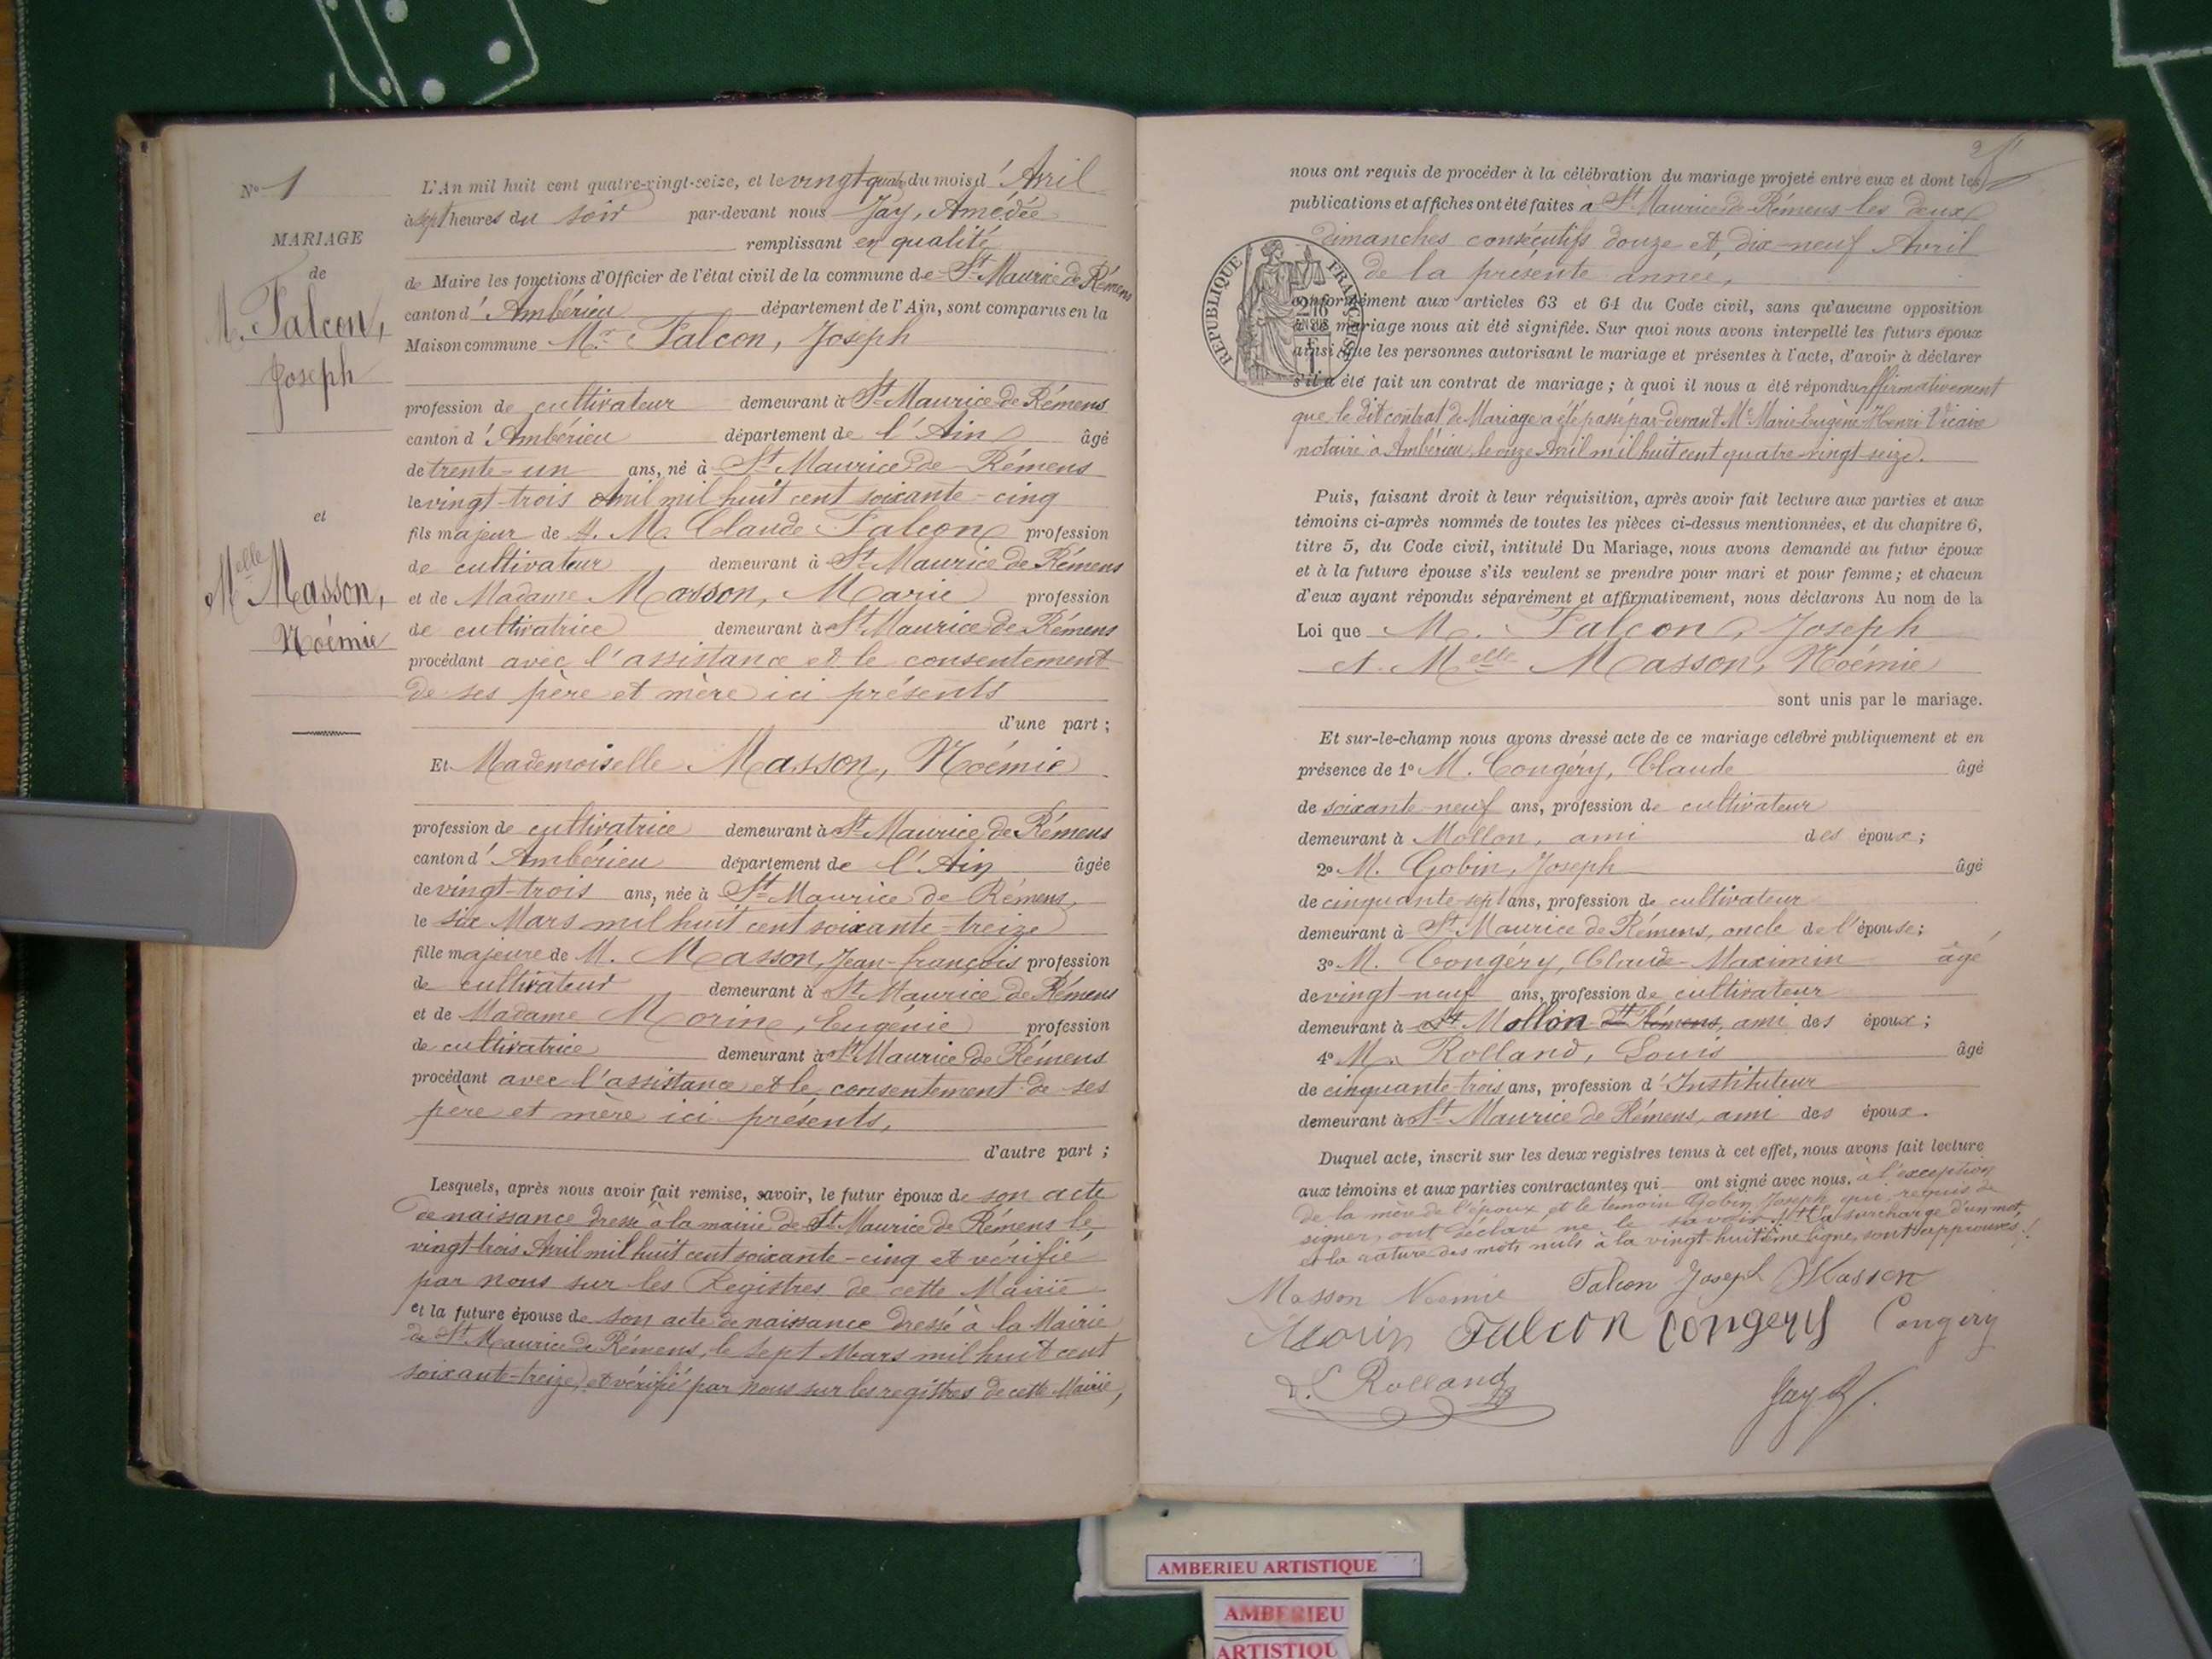 N° 1
MARIAGE
de
M. Falcon,
Joseph
et
Melle Masson,
Noémie
L'An mil huit cent quatre-vingt-seize, et le vingt-quatre du mois d'Avril
à sept heures du soir par-devant nous Jay, Amédée
remplissant en qualité
de Maire les fonctions d'Officier de l'état civil de la commune de St Maurice de Rémens
canton d'Ambérieu département de l'Ain, sont comparus en la
Maison commune Mr Falcon, Joseph
profession de cultivateur demeurant à St Maurice de Rémens
canton d'Ambérieu département de l'Ain âgé
de trente-un ans, né à St Maurice de Rémens
le vingt-trois Avril mil huit cent soixante-cinq
fils majeur de M. Claude Falcon profession
de cultivateur demeurant à St Maurice de Rémens
et de Madame Masson, Marie profession
de cultivatrice demeurant à St Maurice de Rémens
procédant avec l'assistance et le consentement
de ses père et mère ici présents
d'une part ;
Et Mademoiselle Masson, Noémie
profession de cultivatrice demeurant à St Maurice de Rémens
canton d'Ambérieu département de l'Ain âgée
de vingt-trois ans, née à St Maurice de Rémens,
le six Mars mil huit cent soixante-treize
fille majeure de M. Masson, Jean-françois profession
de cultivateur demeurant à St Maurice de Rémens
et de Madame Morin, Eugénie profession
de cultivatrice demeurant à St Maurice de Rémens
procédant avec l'assistance et le consentement de ses
père et mère ici présents,
d'autre part ;
Lesquels, après nous avoir fait remise, savoir, le futur époux de son acte
de naissance dressé à la mairie de St Maurice de Rémens le
vingt-trois Avril mil huit cent soixante-cinq et vérifié
par nous sur les Registres de cette Mairie
et la future épouse de son acte de naissance dressé à la Mairie
de St Maurice de Rémens, le sept Mars mil huit cent
soixante-treize, et vérifié par nous sur les registres de cette Mairie,
nous ont requis de procéder à la célébration du mariage projeté entre eux et dont les
publications et affiches ont été faites à St Maurice de Rémens les deux
dimanches consécutifs douze et dix-neuf Avril
de la présente année,
RÉPUBLIQUE FRANÇAISE
conformément aux articles 63 et 64 du Code civil, sans qu'aucune opposition
à ce mariage nous ait été signifiée. Sur quoi nous avons interpellé les futurs époux
ainsi que les personnes autorisant le mariage et présentes à l'acte, d'avoir à déclarer
s'il a été fait un contrat de mariage ; à quoi il nous a été répondu affirmativement
que le dit contrat de Mariage a été passé par-devant Me Marie-Eugène-Henri Vicaire
notaire à Ambérieu, le onze Avril mil huit cent quatre-vingt-seize.
Puis, faisant droit à leur réquisition, après avoir fait lecture aux parties et aux
témoins ci-après nommés de toutes les pièces ci-dessus mentionnées, et du chapitre 6,
titre 5, du Code civil, intitulé Du Mariage, nous avons demandé au futur époux
et à la future épouse s'ils veulent se prendre pour mari et pour femme ; et chacun
d'eux ayant répondu séparément et affirmativement, nous déclarons Au nom de la
Loi que M. Falcon, Joseph
et Melle Masson, Noémie
sont unis par le mariage.
Et sur-le-champ nous avons dressé acte de ce mariage célébré publiquement et en
présence de 1° M. Congéry, Claude âgé
de soixante-neuf ans, profession de cultivateur
demeurant à Mollon, ami des époux ;
2° M. Gobin, Joseph âgé
de cinquante-sept ans, profession de cultivateur
demeurant à St Maurice de Rémens, oncle de l'épouse ;
3° M. Congéry, Claude-Maximin âgé
de vingt-neuf ans, profession de cultivateur
demeurant à Mollon Rémens, ami des époux ;
4° M. Rolland, Louis âgé
de cinquante-trois ans, profession d'Instituteur
demeurant à St Maurice de Rémens, ami des époux.
Duquel acte, inscrit sur les deux registres tenus à cet effet, nous avons fait lecture
aux témoins et aux parties contractantes qui ont signé avec nous, à l'exception
de la mère de l'époux et le témoin Gobin Joseph qui requis de
signer, ont déclaré ne le savoir. La surcharge d'un mot,
et la rature des mots nuls à la vingt-huitième ligne, sont approuvés !
Masson Noemie Falcon Joseph Masson
Morin Falcon Congery Congery
L. Rolland Jay A.
AMBERIEU ARTISTIQUE
AMBERIEU
ARTISTIQU